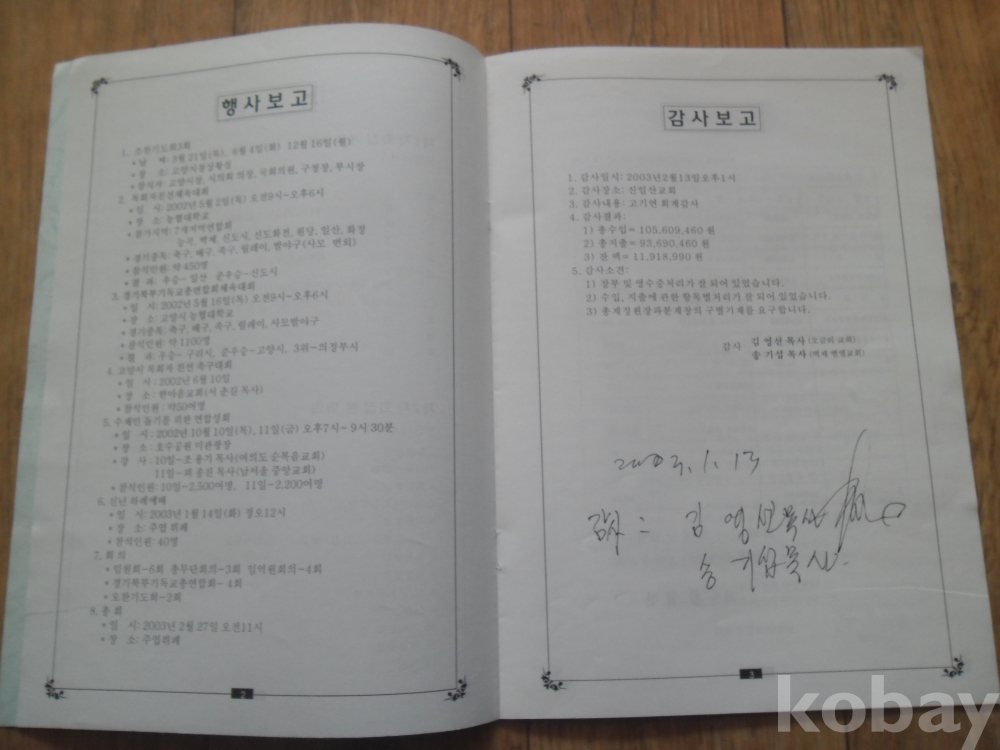 행사보고
1. 조찬기도회3회
* 날 짜: 3월 21일(목), 6월 4일(화) 12월 16일(월)
* 장 소: 고양시청상황실
* 참석자: 고양시장, 시의회 의장, 국회의원, 구청장, 부시장
2. 목회자친선체육대회
* 일 시: 2002년 5월 2일(목) 오전9시~오후6시
* 장 소: 농협대학교
* 참가지역: 7개지역연합회
능곡, 벽제, 신도시, 신도화전, 원당, 일산, 화정
* 경기종목: 축구, 배구, 족구, 릴레이, 발야구(사모 번외)
* 참석인원: 약 450명
* 결 과: 우승- 일산 준우승-신도시
3. 경기북부기독교총연합회체육대회
* 일 시: 2002년 5월 16일(목) 오전9시~오후6시
* 장 소: 고양시 농협대학교
* 경기종목: 축구, 배구, 족구, 릴레이, 사모발야구
* 참석인원: 약 1100명
* 결 과: 우승- 구리시, 준우승-고양시, 3위-의정부시
4. 고양시 목회자 친선 족구대회
* 일 시: 2002년 6월 10일
* 장 소: 한마음교회(서 춘길 목사)
* 참석인원: 약50여명
5. 수재민 돕기를 위한 연합성회
* 일 시: 2002년 10월 10일(목), 11일(금) 오후7시~ 9시 30분
* 장 소: 호수공원 미관광장
* 강 사: 10일-조 용기 목사(여의도 순복음교회)
11일-피 종진 목사(남서울 중앙교회)
* 참석인원: 10일-2,500여명, 11일-2,200여명
6. 신년 하례예배
* 일 시: 2003년 1월 14일(화) 정오12시
* 장 소: 주업 뷔페
* 참석인원: 40명
7. 회 의
* 임원회-6회 총무단회의-3회 임역원회의-4회
* 경기북부기독교총연합회- 4회
* 오찬기도회-2회
8. 총 회
* 일 시: 2003년 2월 27일 오전11시
* 장 소: 주업뷔페
2
감사보고
1. 감사일시: 2003년2월13일오후1시
2. 감사장소: 신일산교회
3. 감사내용: 고기연 회계감사
4. 감사결과:
1) 총수입= 105,609,460 원
2) 총지출= 93,690,460 원
3) 잔 액= 11,918,990 원
5. 감사소견:
1) 장부 및 영수증처리가 잘 되어 있었습니다.
2) 수입, 지출에 관한 항목별처리가 잘 되어 있었습니다.
3) 총재정원장과분계장의 구별기재를 요구합니다.
감사 김 영선 목사(오금리 교회)
송 기섭 목사(벽제 벧엘교회)
2003. 1. 13
감사: 김 영선목사
송 기섭목사
3
kobay